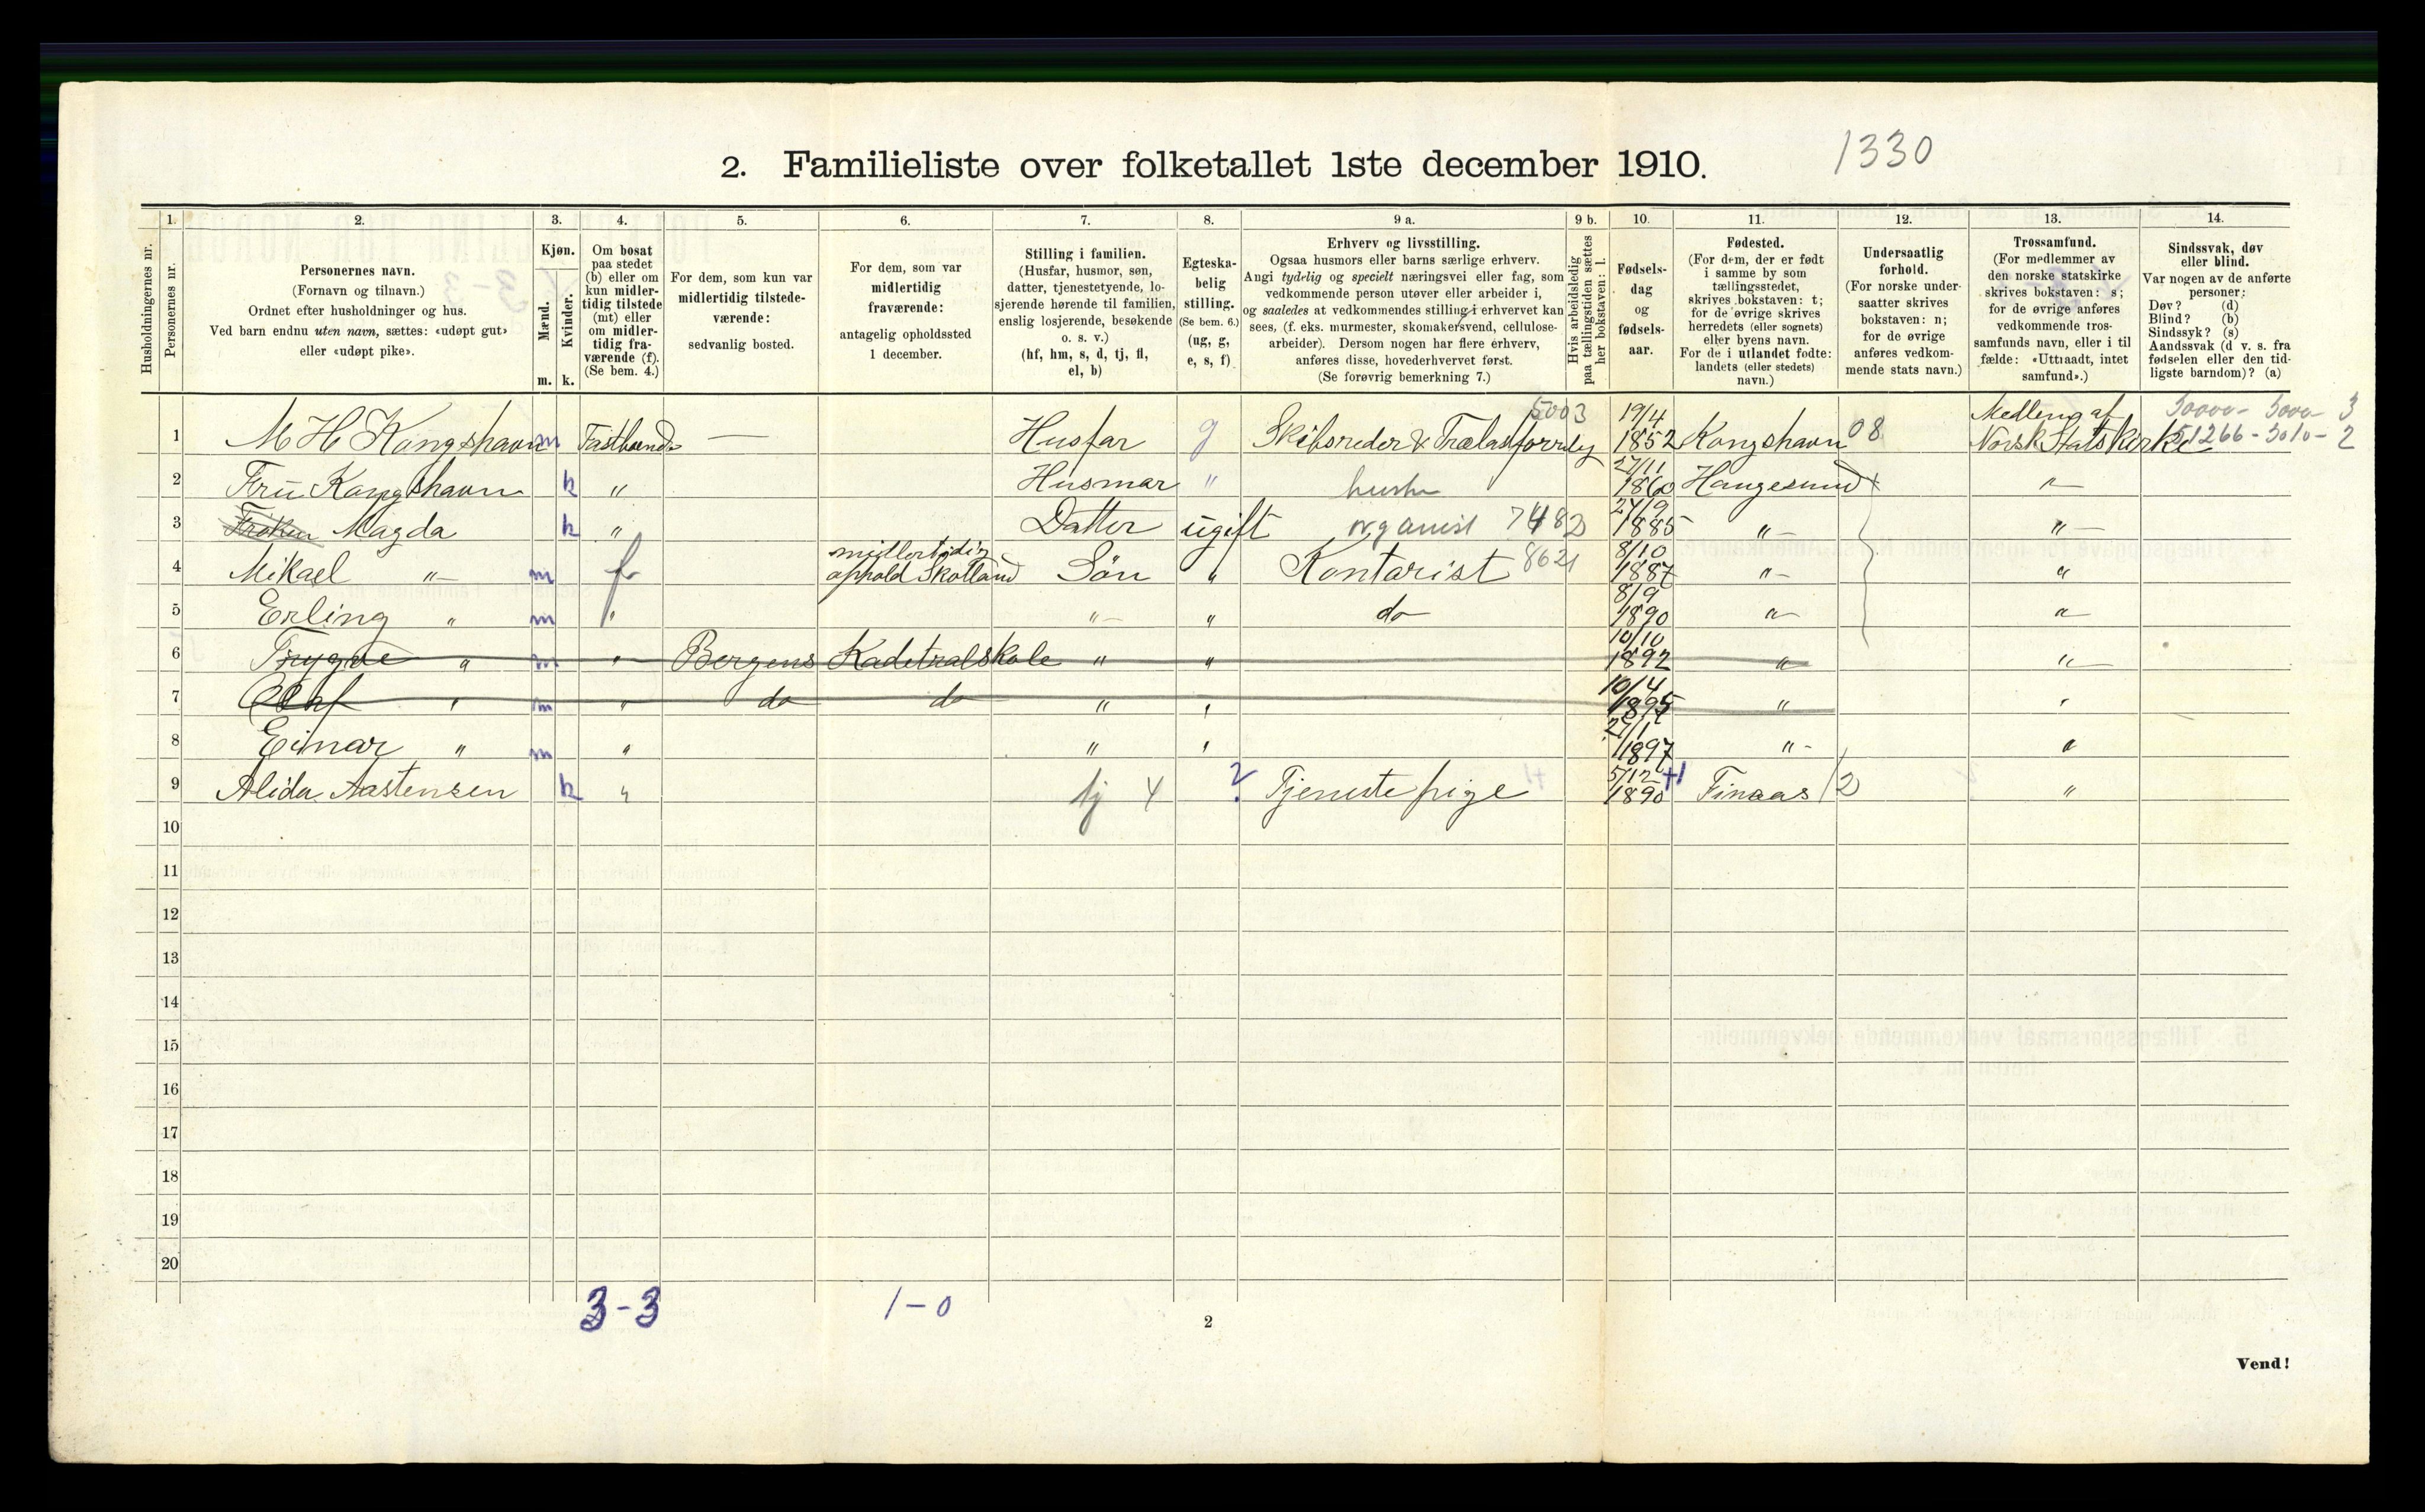 1330
2. Familieliste over folketallet 1ste december 1910.
Husholdningernes nr.
1. Personernes nr.
2. Personernes navn.
(Fornavn og tilnavn.)
Ordnet efter husholdninger og hus.
Ved barn endnu uten navn, sættes: «udøpt gut»
eller «udøpt pike».
3. Kjøn.
Mænd. m.
Kvinder. k.
4. Om bosat
paa stedet
(b) eller om
kun midler-
tidig tilstede
(mt) eller
om midler-
tidig fra-
værende (f).
(Se bem. 4.)
5. For dem, som kun var
midlertidig tilstede-
værende:
sedvanlig bosted.
6. For dem, som var
midlertidig
fraværende:
antagelig opholdssted
1 december.
7. Stilling i familien.
(Husfar, husmor, søn,
datter, tjenestetyende, lo-
sjerende hørende til familien,
enslig losjerende, besøkende
o. s. v.)
(hf, hm, s, d, tj, fl,
el, b)
8. Egteska-
belig
stilling.
(Se bem. 6.)
(ug, g,
e, s, f)
9 a. Erhverv og livsstilling.
Ogsaa husmors eller barns særlige erhverv.
Angi tydelig og specielt næringsvei eller fag, som
vedkommende person utøver eller arbeider i,
og saaledes at vedkommendes stilling i erhvervet kan
sees, (f. eks. murmester, skomakersvend, cellulose-
arbeider). Dersom nogen har flere erhverv,
anføres disse, hovederhvervet først.
(Se forøvrig bemerkning 7.)
9 b. Hvis arbeidsledig
paa tællingstiden sættes
her bokstaven: l.
10. Fødsels-
dag
og
fødsels-
aar.
11. Fødested.
(For dem, der er født
i samme by som
tællingsstedet,
skrives bokstaven: t;
for de øvrige skrives
herredets (eller sognets)
eller byens navn.
For de i utlandet fødte:
landets (eller stedets)
navn.)
12. Undersaatlig
forhold.
(For norske under-
saatter skrives
bokstaven: n;
for de øvrige
anføres vedkom-
mende stats navn.)
13. Trossamfund.
(For medlemmer av
den norske statskirke
skrives bokstaven: s;
for de øvrige anføres
vedkommende tros-
samfunds navn, eller i til
fælde: «Uttraadt, intet
samfund».)
14. Sindssvak, døv
eller blind.
Var nogen av de anførte
personer:
Døv? (d)
Blind? (b)
Sindssyk? (s)
Aandssvak (d v. s. fra
fødselen eller den tid-
ligste barndom)? (a)
1 M H Kongshavn m Fastboende — Husfar g Skibsreder & Trælastforretn 5003 19/4 1852 Kongshavn 08 Medlem af Norsk Statskirke 50000 - 5000 - 3
51266 - 5010 - 2
2 Fru Kongshavn k " Husmor " hustr 27/11 1860 Haugesund "
3 Frøken Magda k " Datter ugift organist 7482 27/9 1885 " "
4 Mikael " m f midlertidig ophold Skotland Søn " Kontorist 8621 8/10 1887 " "
5 Erling " m " " " do 8/9 1890 " "
6 Trygve " m " Bergens Kadetralskole " " 10/10 1892 " "
7 Olaf " m " do do " " 10/4 1895 " "
8 Einar " m " " " 27/1 1897 " "
9 Alida Aastensen k " tj 4 ? Tjenestepige 5/12 1890 +1 Finaas 12 "
10
11
12
13
14
15
16
17
18
19
20
3-3 1-0
2
Vend!